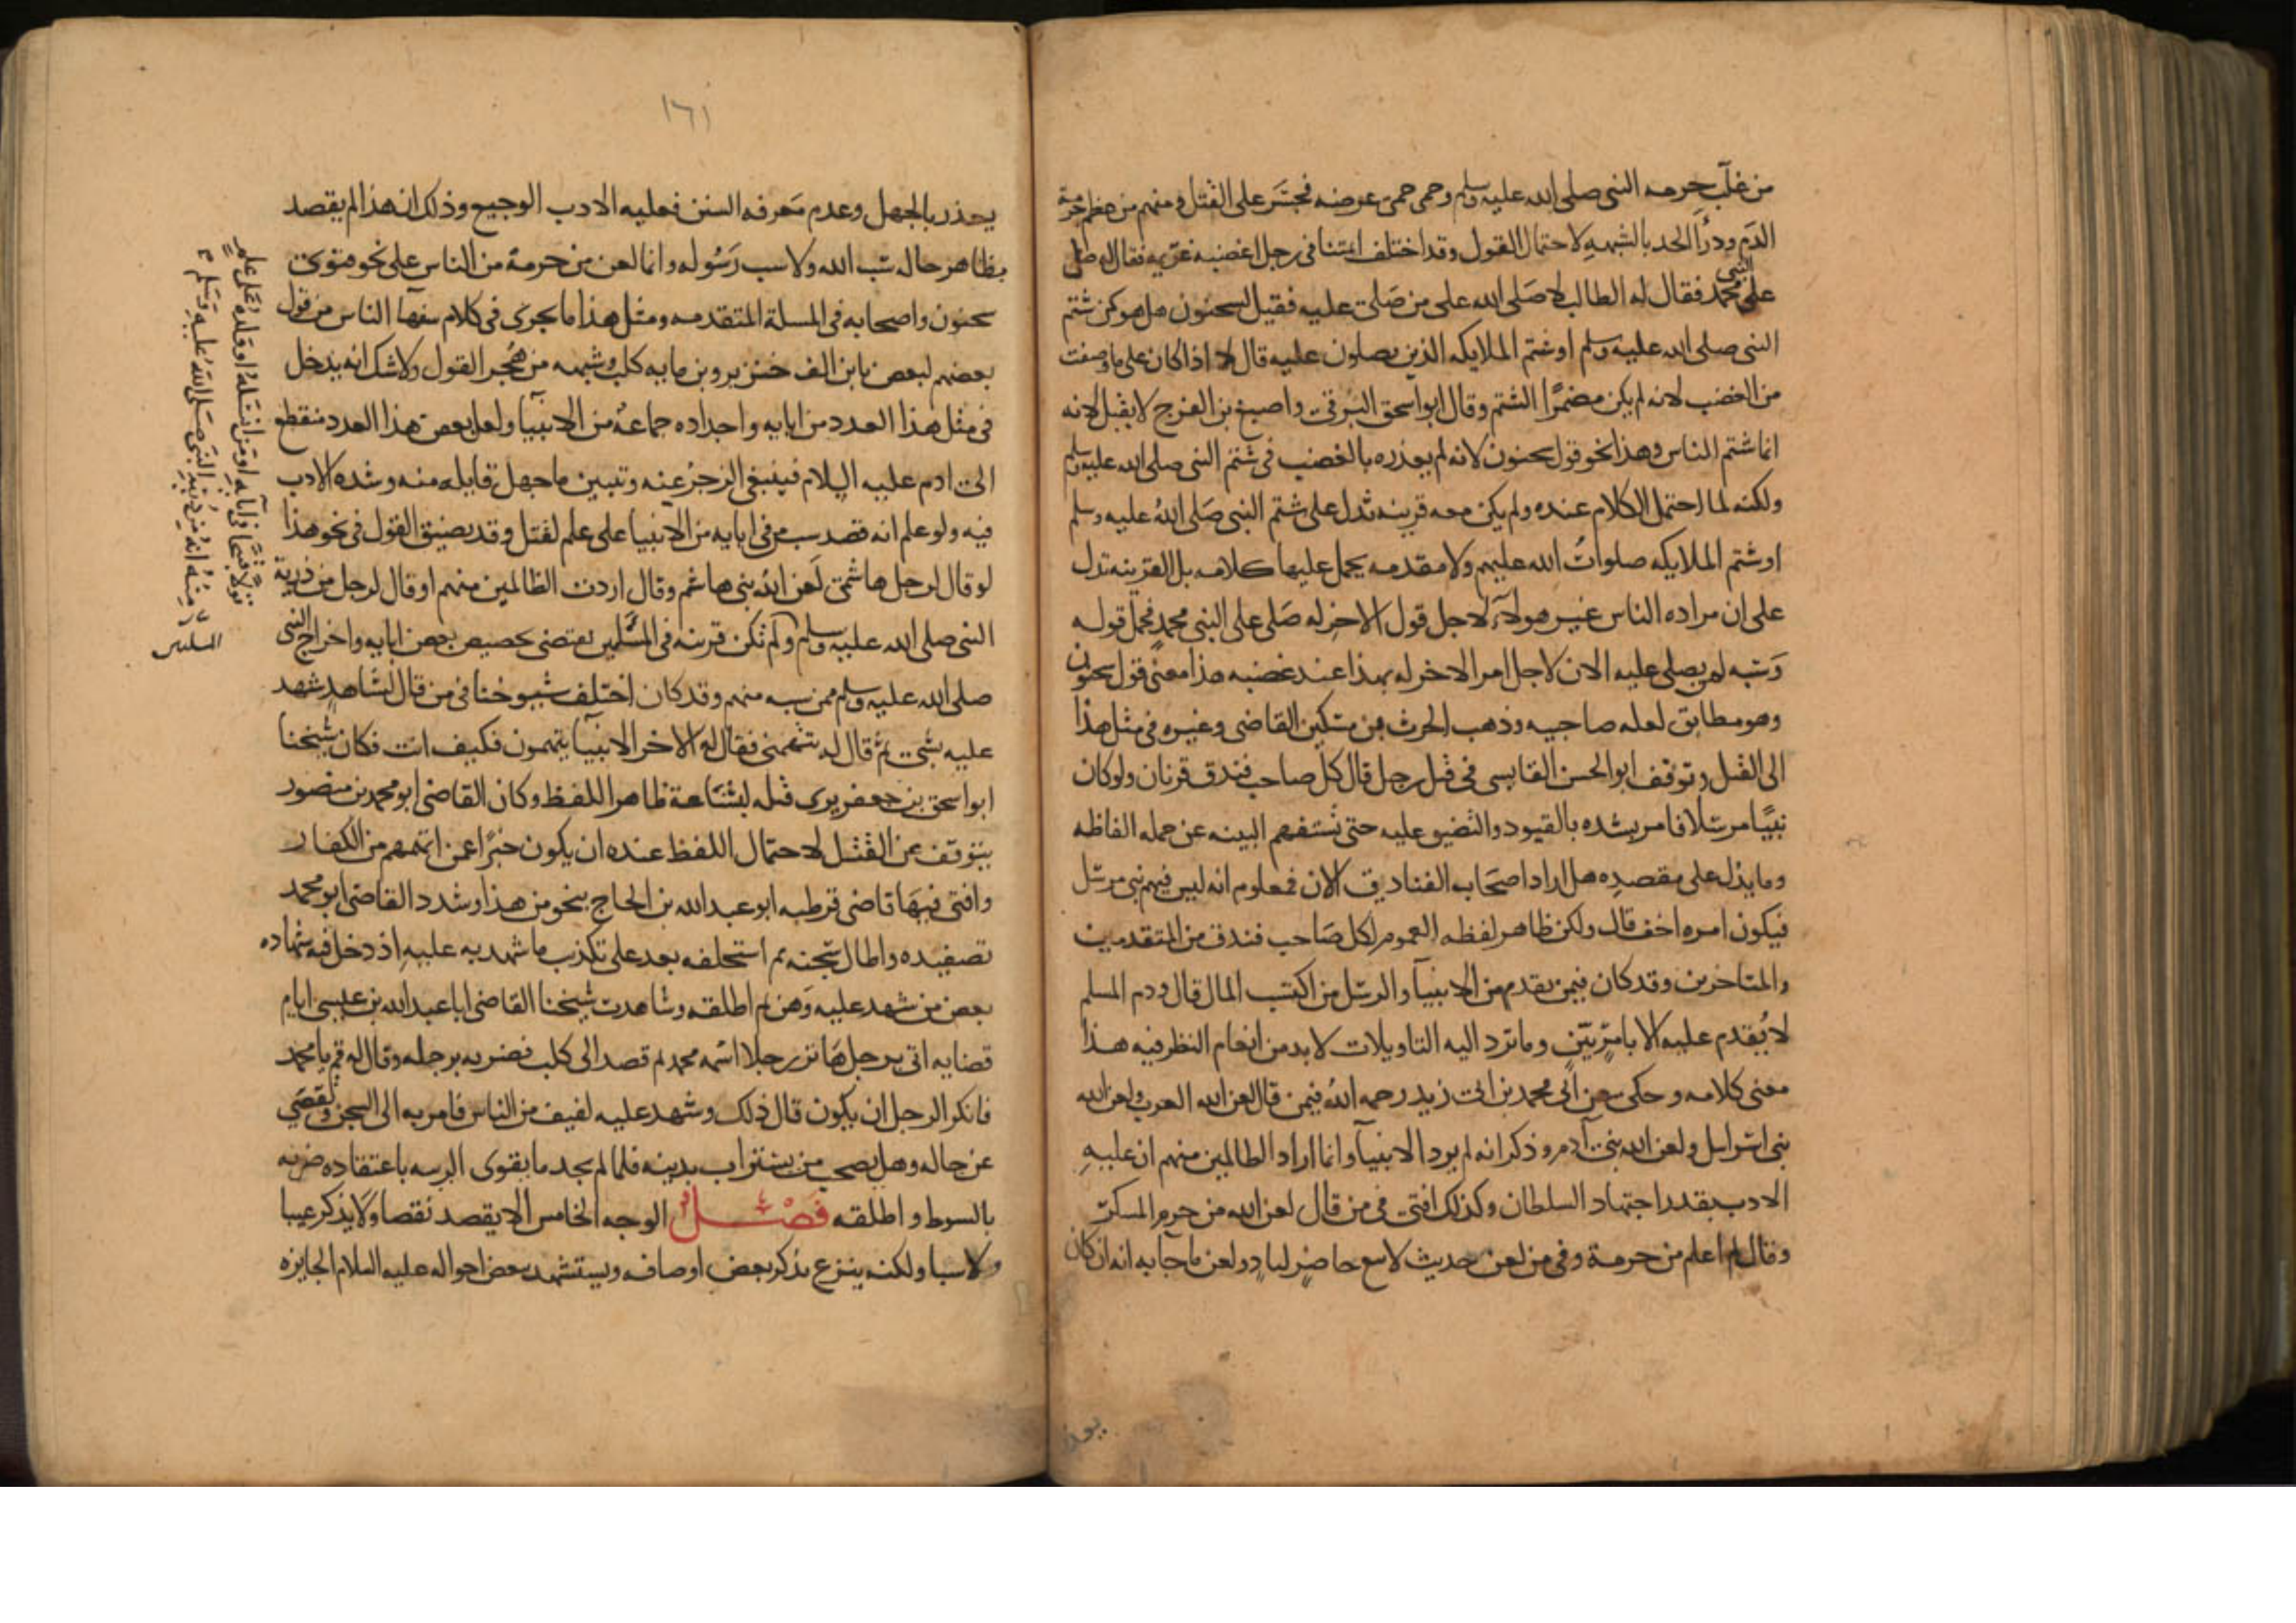 من غلب حرمه النبى صلى الله عليه وسلم وحمى حمى عرضه فجسر على القتل ومنهم من عظم حرمة
الدم ودرأ الحد بالشبهه لاحتمال القول وقد اختلف ائمتنا فى رجل اغضبه غريمه فقال له صل
على النبى محمد فقال له الطالب لا صلى الله على من صلى عليه فقيل لسحنون هل هو كمن شتم
النبى صلى الله عليه وسلم او شتم الملايكه الذين يصلون عليه قال لا اذا كان على ما وصفت
من الغضب لانه لم يكن مضمرا الشتم وقال ابو اسحق البرقى واصبغ بن الفرج لا يقبل لانه
انما شتم الناس وهذا نحو قول سحنون لانه لم يعذره بالغضب فى شتم النبى صلى الله عليه وسلم
ولكنه لما احتمل الكلام عنده ولم يكن معه قرينه تدل على شتم النبى صلى الله عليه وسلم
او شتم الملايكه صلوات الله عليهم ولا مقدمه يحمل عليها كلامه بل القرينه تدل
على ان مراده الناس غير هولاء لاجل قول الاخر له صلى على النبى محمد فحمل قوله
وسبه لمن يصلى عليه الان لاجل امر الاخر له بهذا عند غضبه هذا معنى قول سحنون
وهو مطابق لعله صاحبيه وذهب الحرث بن مسكين القاضى وغيره فى مثل هذا
الى القتل وتوقف ابو الحسن القابسى فى قتل رجل قال كل صاحب فندق قرنان ولو كان
نبيا مرسلا فامر بشده بالقيود والتضيق عليه حتى تستفهم البينه عن جمله الفاظه
وما يدل على مقصده هل اراد اصحاب الفنادق الان فمعلوم انه ليس فيهم نبى مرسل
فيكون امره اخف قال ولكن ظاهر لفظه العموم لكل صاحب فندق من المتقدمين
والمتاخرين وقد كان فيمن تقدم من الانبيآ والرسل من اكتسب المال قال ودم المسلم
لا يقدم عليه الا بامر بين وما ترد اليه التاويلات لا بد من انعام النظر فيه هذا
معنى كلامه وحكى عن ابى محمد بن ابى زيد رحمه الله فيمن قال لعن الله العرب ولعن الله
بنى اسرايل ولعن الله بنى آدم وذكر انه لم يرد الانبيآ وانما اراد الظالمين منهم ان عليه
الادب بقدر اجتهاد السلطان وكذلك افتى فى من قال لعن الله من حرم المسكر
وقال لم اعلم من حرمه وفى من لعن حديث لا يبع حاضر لباد ولعن ما جآ به انه ان كان
يعذر
١٦١
يعذر بالجهل وعدم معرفه السنن فعليه الادب الوجيع وذلك ان هذا لم يقصد
بظاهر حاله سب الله ولا سب رسوله وانما لعن من حرمه من الناس على نحو فتوى
سحنون واصحابه فى المسلة المتقدمه ومثل هذا ما يجرى فى كلام سفهآ الناس من قول
بعضهم لبعض يا بن الف خنزير وبن مايه كلب وشبهه من هجر القول ولا شك انه يدخل
فى مثل هذا العدد من ابايه واجداده جماعة من الانبيآ ولعل بعض هذا العدد منقطع
الى ادم عليه السلام فينبغى الزجر عنه وتبيين ما جهل قايله منه وشده الادب
فيه ولو علم انه قصد سب من فى ابايه من الانبيا على علم لقتل وقد يضيق القول فى نحو هذا
لو قال لرجل هاشمى لعن الله بنى هاشم وقال اردت الظالمين منهم او قال لرجل من ذرية
النبى صلى الله عليه وسلم ولم تكن قرينه فى المسلتين تقتضى تخصيص بعض ابايه واخراج النبى
صلى الله عليه وسلم ممن سبه منهم وقد كان اختلف شيوخنا فى من قال لشاهد شهد
عليه بشى ثم قال له تتهمنى فقال له الاخر الانبيآ يتهمون فكيف انت فكان شيخنا
ابو اسحق بن جعفر يرى قتله لبشاعة ظاهر اللفظ وكان القاضى ابو محمد بن منصور
يتوقف عن القتل لاحتمال اللفظ عنده ان يكون خبرا عمن اتهمهم من الكفار
وافتى فيها قاضى قرطبه ابو عبد الله بن الحاج بنحو من هذا وشدد القاضى ابو محمد
تصفيده واطال سجنه ثم استحلفه بعد على تكذب ما شهد به عليه اذ دخل فيه شهاده
بعض من شهد عليه وهن ثم اطلقه وشاهدت شيخنا القاضى ابا عبد الله بن عيسى ايام
قضايه اتى برجل هاتر رجلا اسمه محمد ثم قصد الى كلب فضربه برجله وقال له قم يا محمد
فانكر الرجل ان يكون قال ذلك وشهد عليه لفيف من الناس فامر به الى السجن وتقصى
عن حاله وهل يصحب من يستراب بدينه فلما لم يجد ما يقوى الريبه باعتقاده ضربه
بالسوط واطلقه فصل الوجه الخامس الا يقصد نقصا ولا يذكر عيبا
ولا سبا ولكنه ينزع بذكر بعض اوصافه ويستشهد ببعض احواله عليه السلام الجايزه
قولا قبيحا فى آبايه او من نسله او ولده على علم
منه انه من ذرية النبى صلى الله عليه وسلم